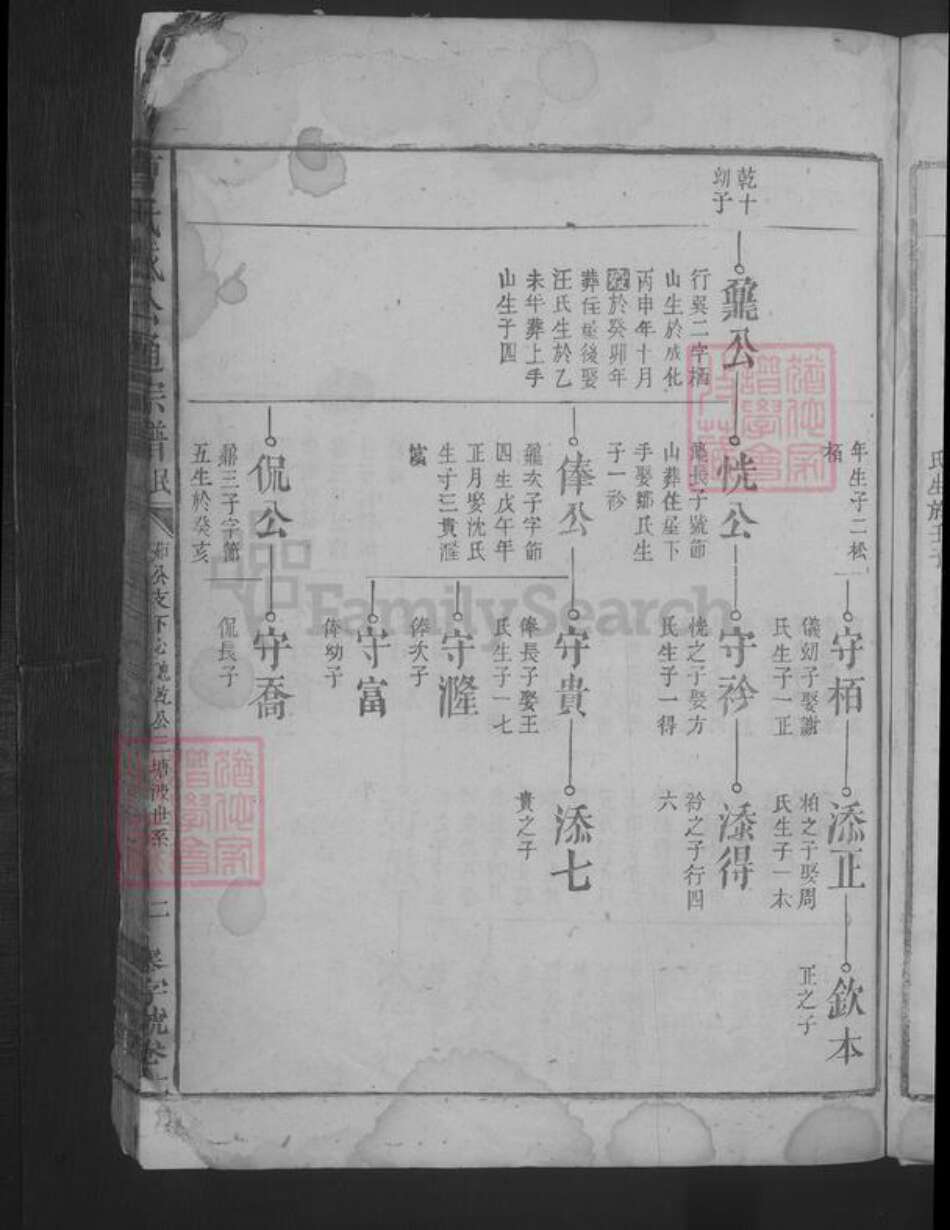 乾十
幼子
鼐公
行巽二字栢
山生於成化
丙申年十月
歿於癸卯年
葬住屋後娶
汪氏生於乙
未年葬上手
山生子四
年生子二松
栢
守栢
儀幼子娶謝
氏生子一正
添正
柏之子娶周
氏生子一本
欽本
正之子
恍公
鼐長子號節
山葬住屋下
手娶鄒氏生
子一衿
守衿
恍之子娶方
氏生子一得
添得
衿之子行四
六
俸公
鼐次子字節
四生戊午年
正月娶沈氏
生子三貴漋
富
守貴
俸長子娶王
氏生子一七
添七
貴之子
守漋
俸次子
守富
俸幼子
侃公
鼐三子字節
五生於癸亥
守喬
侃長子
公通宗譜
二
字號卷
FamilySearch